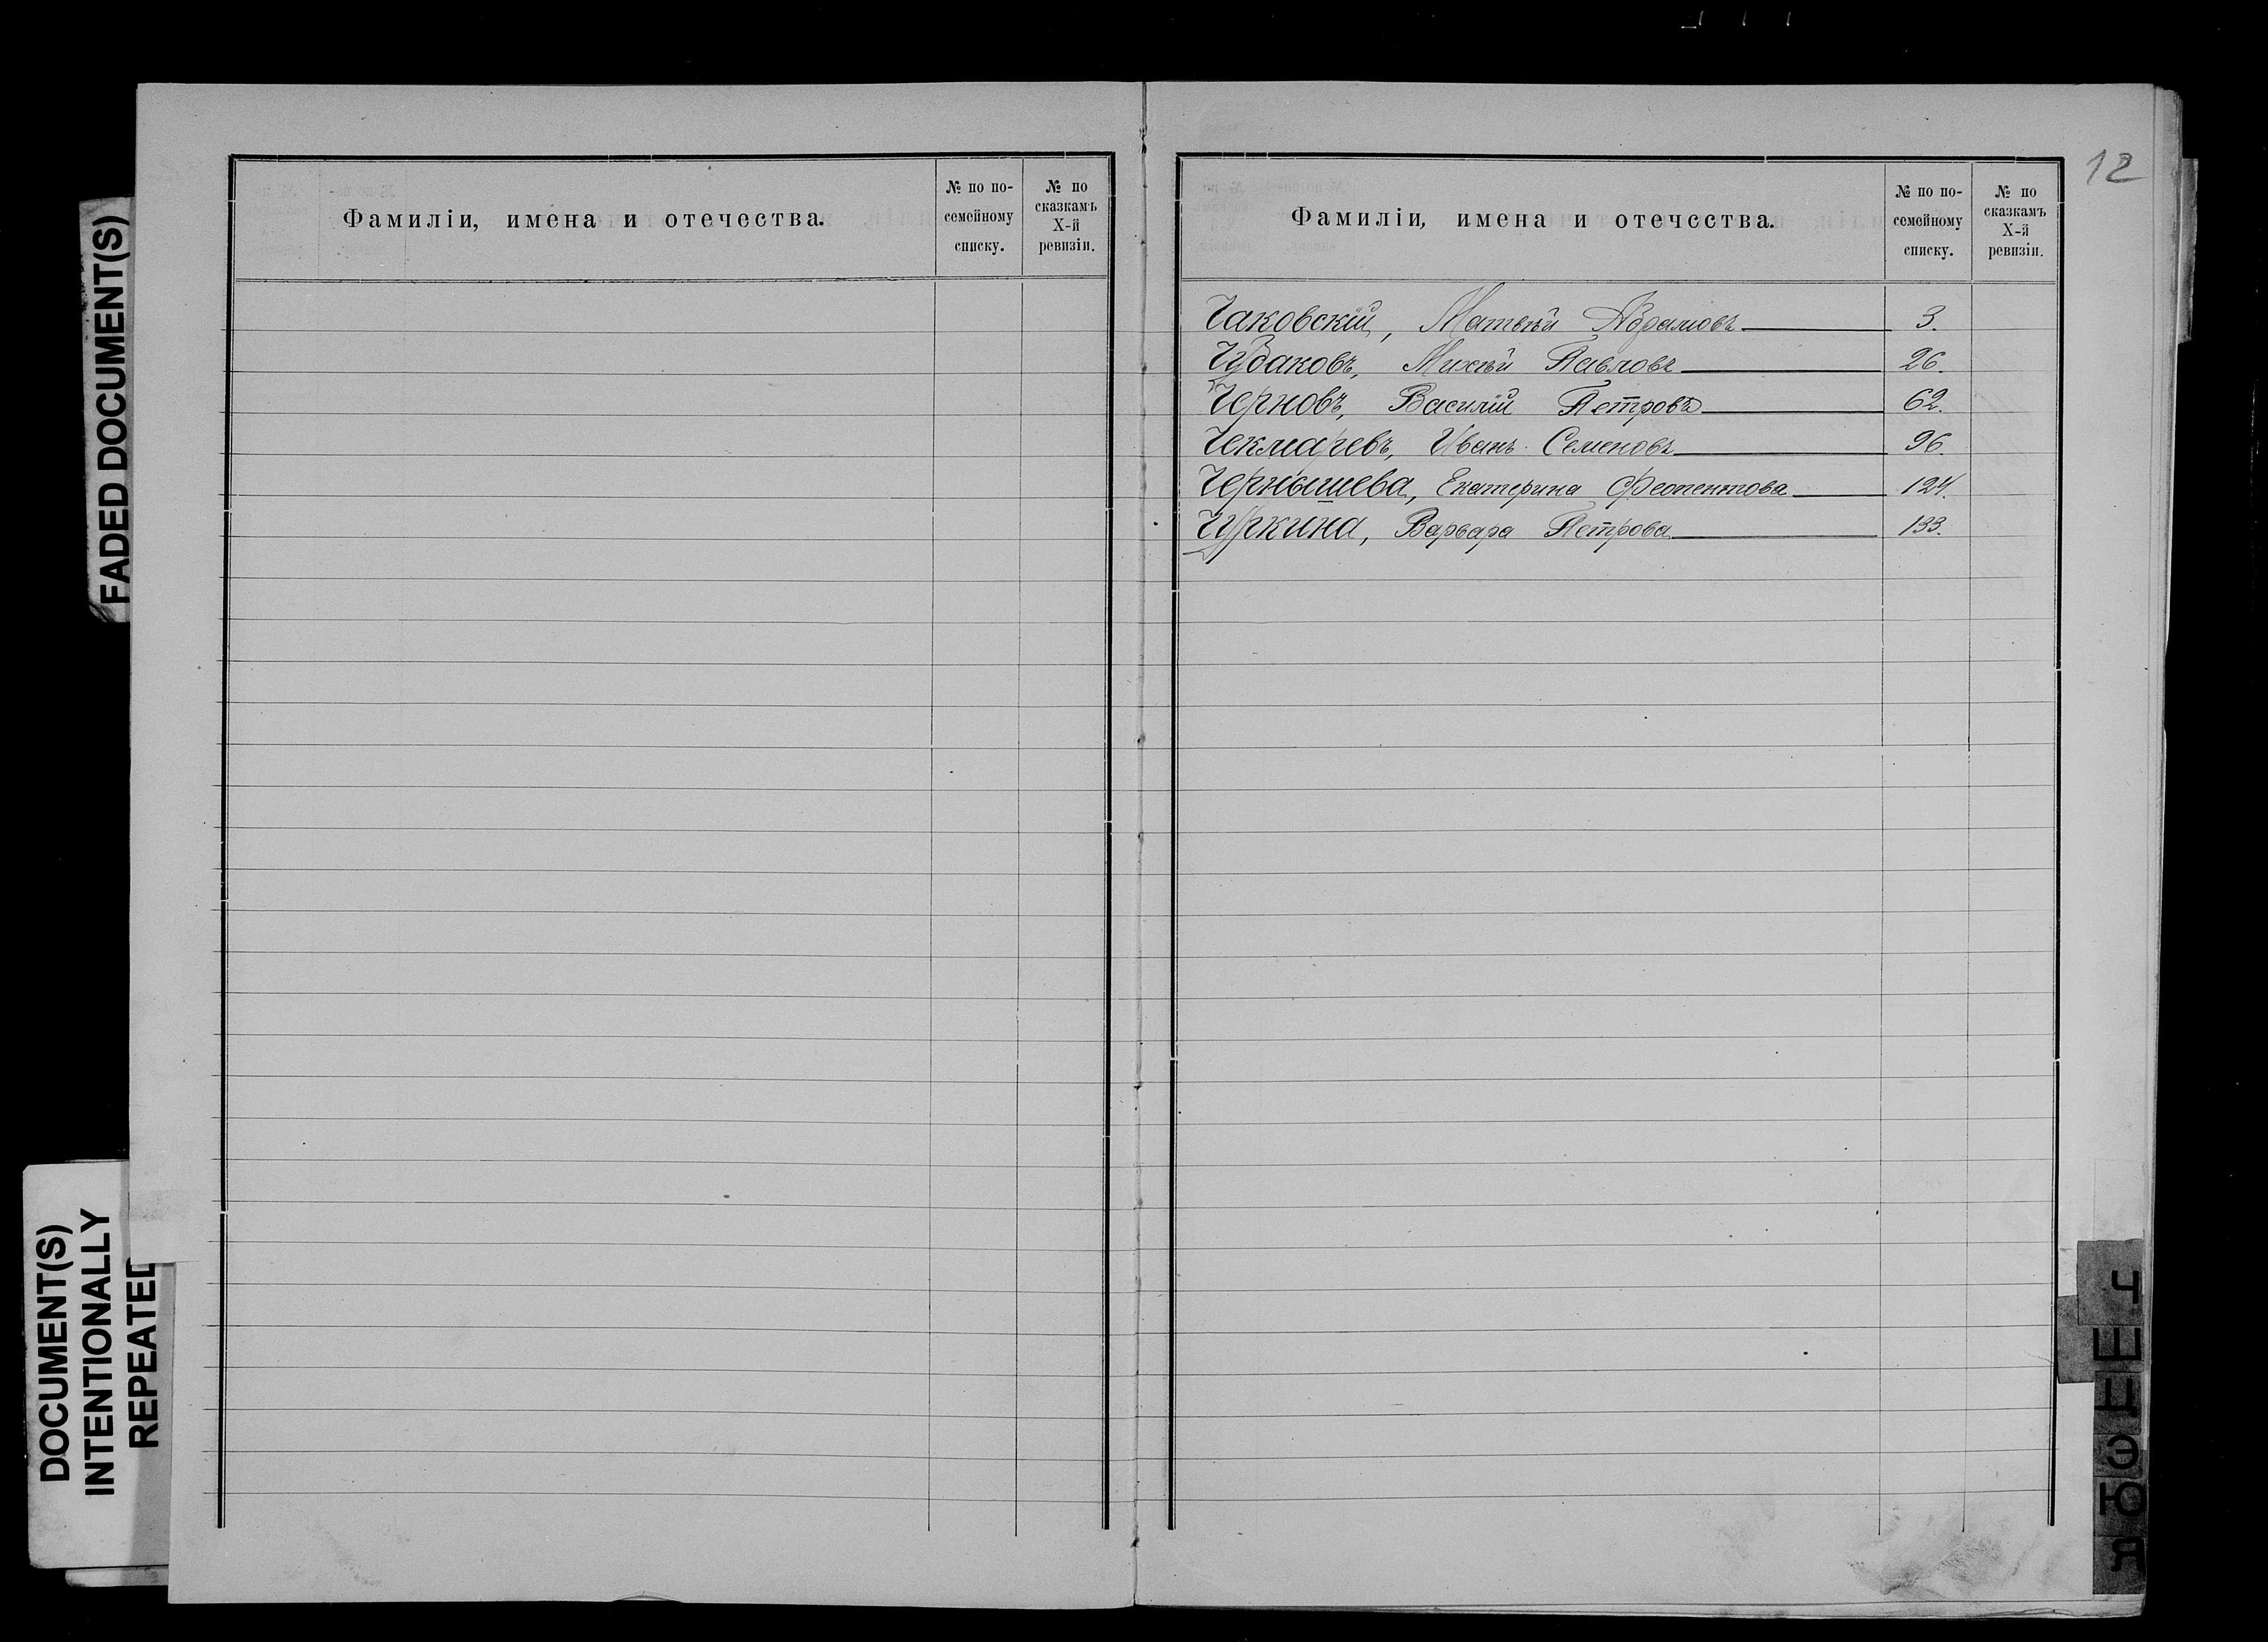 FADED DOCUMENT(S)
DOCUMENT(S)
INTENTIONALLY
REPEATED
Фамиліи, имена и отечества.
№ по по-
семейному
списку.
№ по
сказкамъ
X-й
ревизіи.
12
Фамиліи, имена и отечества.
№ по по-
семейному
списку.
№ по
сказкамъ
X-й
ревизіи.
Чаковскій, Матвѣй Абрамовъ 3.
Чудаковъ, Михѣй Павловъ 26.
Черновъ, Василій Петровъ 62.
Чекмаревъ, Иванъ Семеновъ 96.
Чернышева, Екатерина Феопентова 124.
Чуркина, Варвара Петрова 133.
Ч
Ш
Щ
Э
Ю
Я